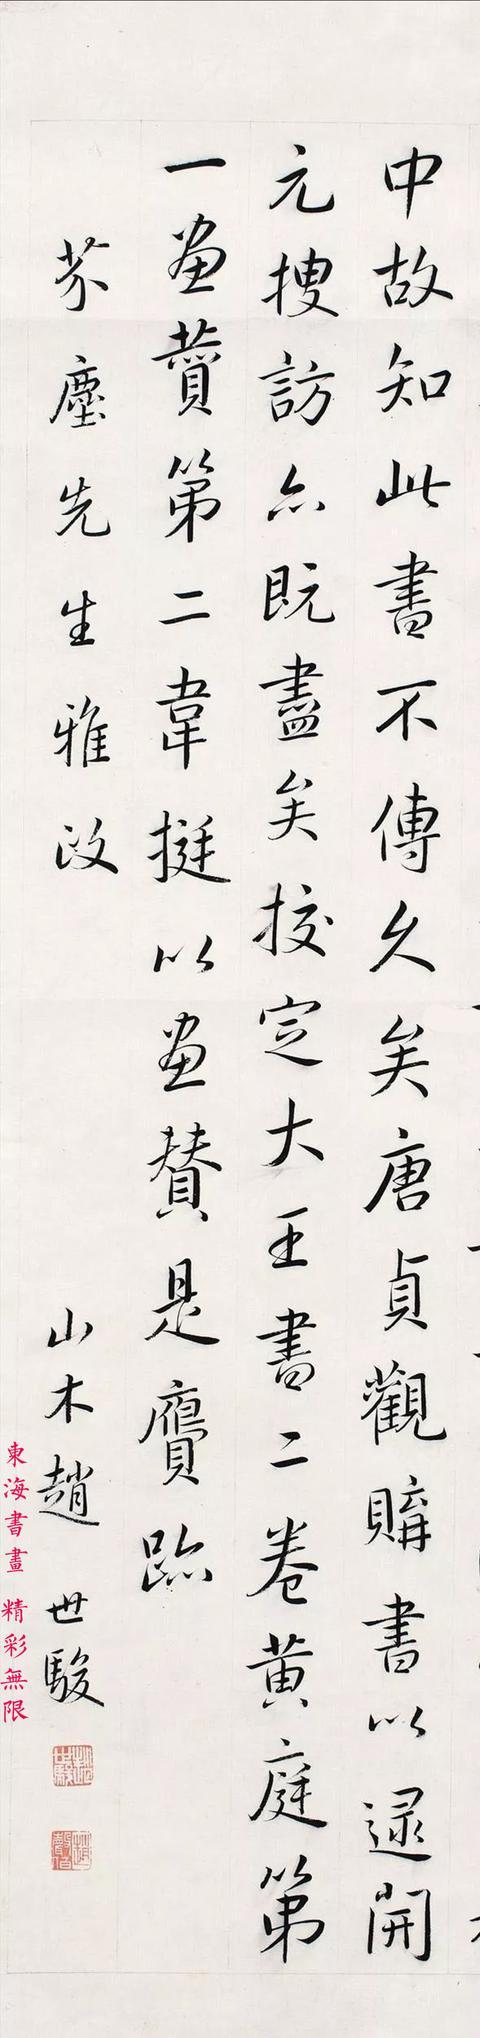 中故知此書不傳久矣唐貞觀購書以逯開
元搜訪亦既盡矣挍定大王書二卷黄庭第
一畫賛第二韋挺以畫賛是贗跡
芥塵先生雅政
山木趙世駿
東海書畫 精彩無限